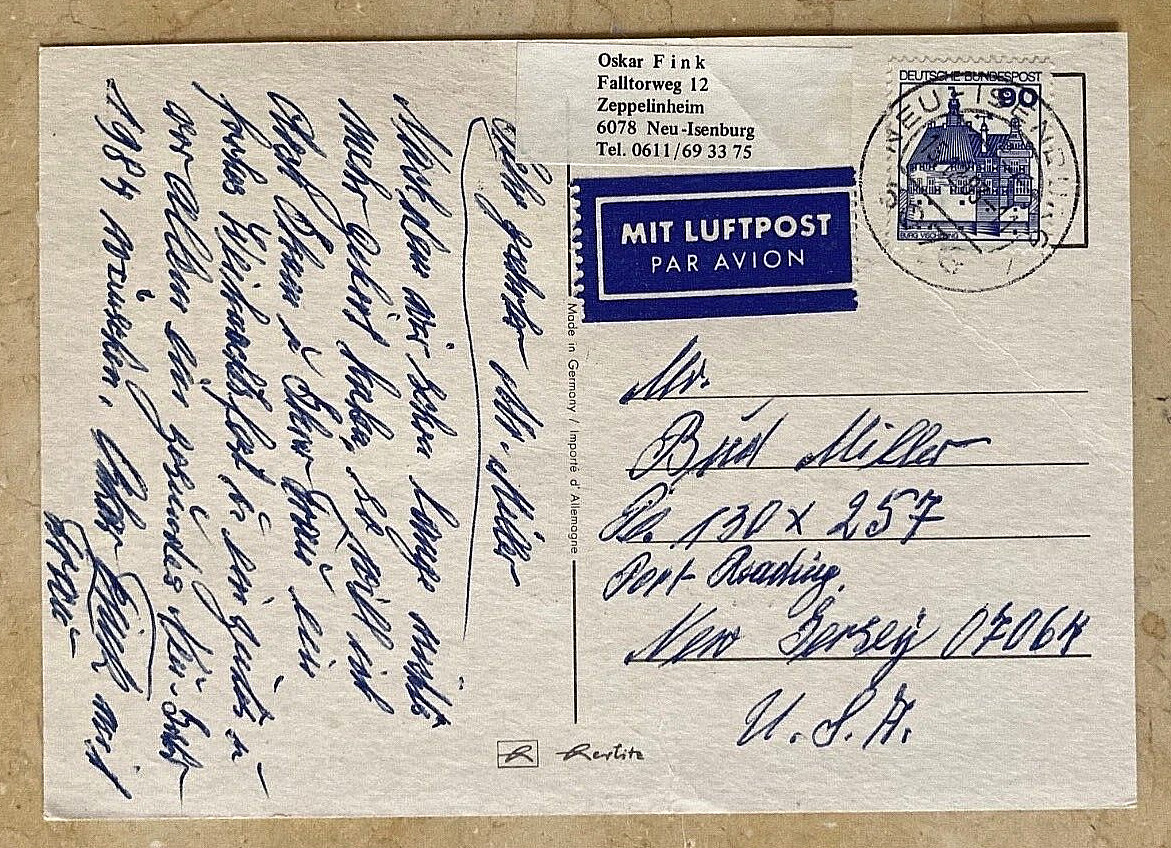 Oskar Fink
Falltorweg 12
Zeppelinheim
6078 Neu-Isenburg
Tel. 0611/69 33 75
DEUTSCHE BUNDESPOST
90
NEU-ISENBURG
MIT LUFTPOST
PAR AVION
Made in Germany / Importé d'Allemagne
Sehr geehrter Mr. Miller
Nachdem wir schon lange nichts
mehr gehört haben, so will ich
Ihnen Frau ein
frohes Weihnachtsfest u. ein gutes u.
vor allem ein gesundes Neu-Jahr
1984 wünschen, Oskar Fink mit
Frau
Mr.
Bud Miller
Bo. 130 x 257
Port Reading,
New Jersey 07064
U. S. A.
Herlitz